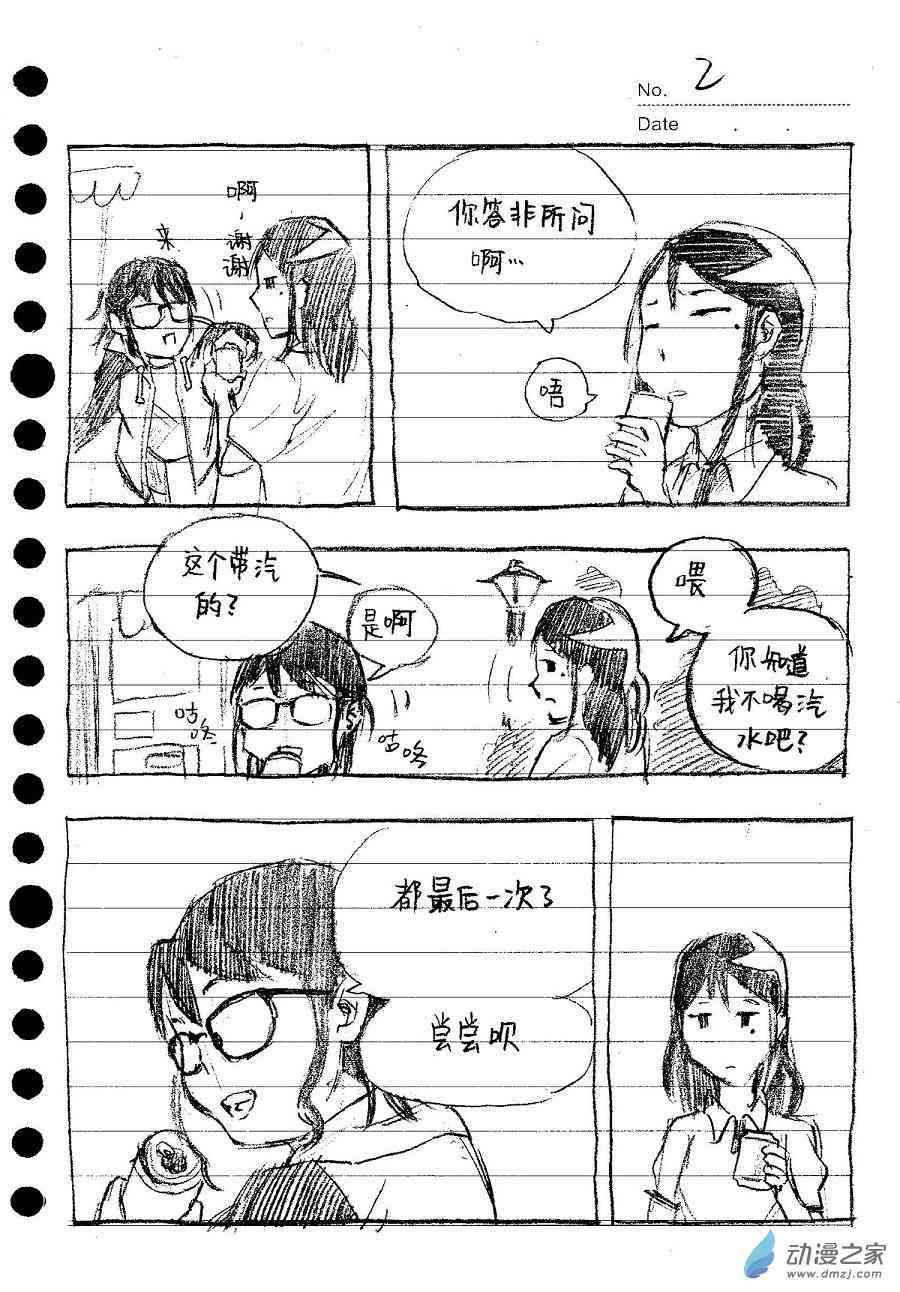 No. 2
Date
来
啊，
谢
谢
你答非所问
啊…
唔
这个带汽
的？
是啊
咕咚
咕咚
喂
你知道
我不喝汽
水吧？
都最后一次了
尝尝呗
动漫之家
www.dmzj.com